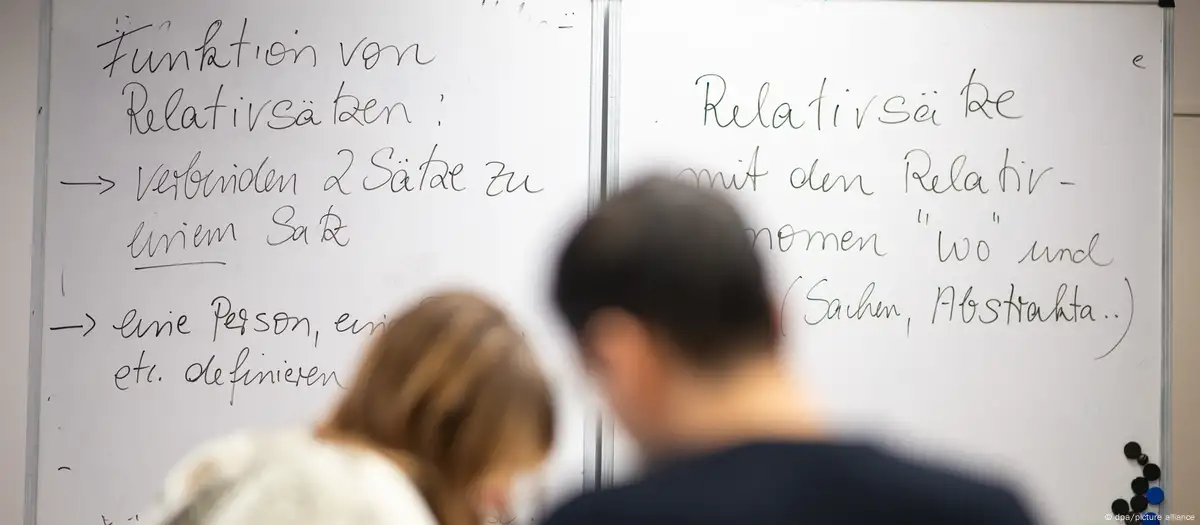 Funktion von
Relativsätzen :
→ verbinden 2 Sätze zu
einem Satz
→ eine Person,
etc. definieren
e
Relativsätze
mit den Relativ-
"wo" und
(Sachen, Abstrakta..)
© dpa/picture alliance